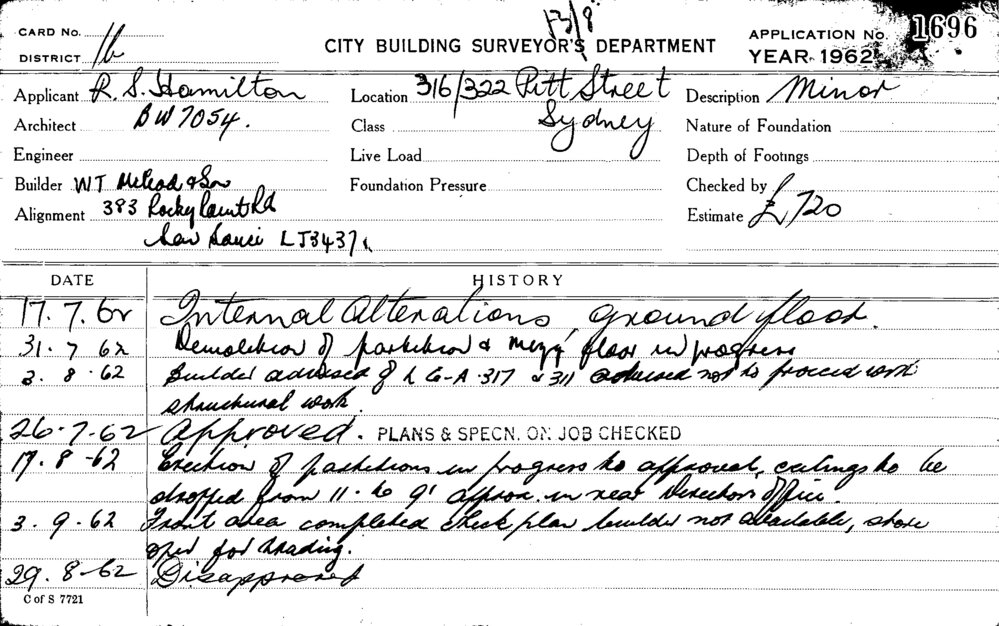 13/8
CARD No.
DISTRICT 1b
CITY BUILDING SURVEYOR'S DEPARTMENT
APPLICATION No. 1696
YEAR 1962 A
Applicant R. S. Hamilton
Location 316/322 Pitt Street
Description Minor
Architect BW7054.
Class Sydney
Nature of Foundation
Engineer
Live Load
Depth of Footings
Builder WT McLeod & Son
Foundation Pressure
Checked by
Alignment 383 Rocky Point Rd
Estimate £720
San Souci LJ3437
DATE HISTORY
17.7.62 Internal Alterations, ground floor.
31.7 62 Demolition of partition & mezz floor in progress
3.8.62 Builder advised of L G-A 317 & 311 advised not to proceed with
structural work.
26-7-62 Approved. PLANS & SPECN. ON JOB CHECKED
17.8-62 Erection of partitions in progress to approval, ceilings to be
dropped from 11' to 9' approx. in rear Directors office.
3.9.62 Front area completed check plan builder not available, store
open for trading.
29.8-62 Disapproved
C of S 7721